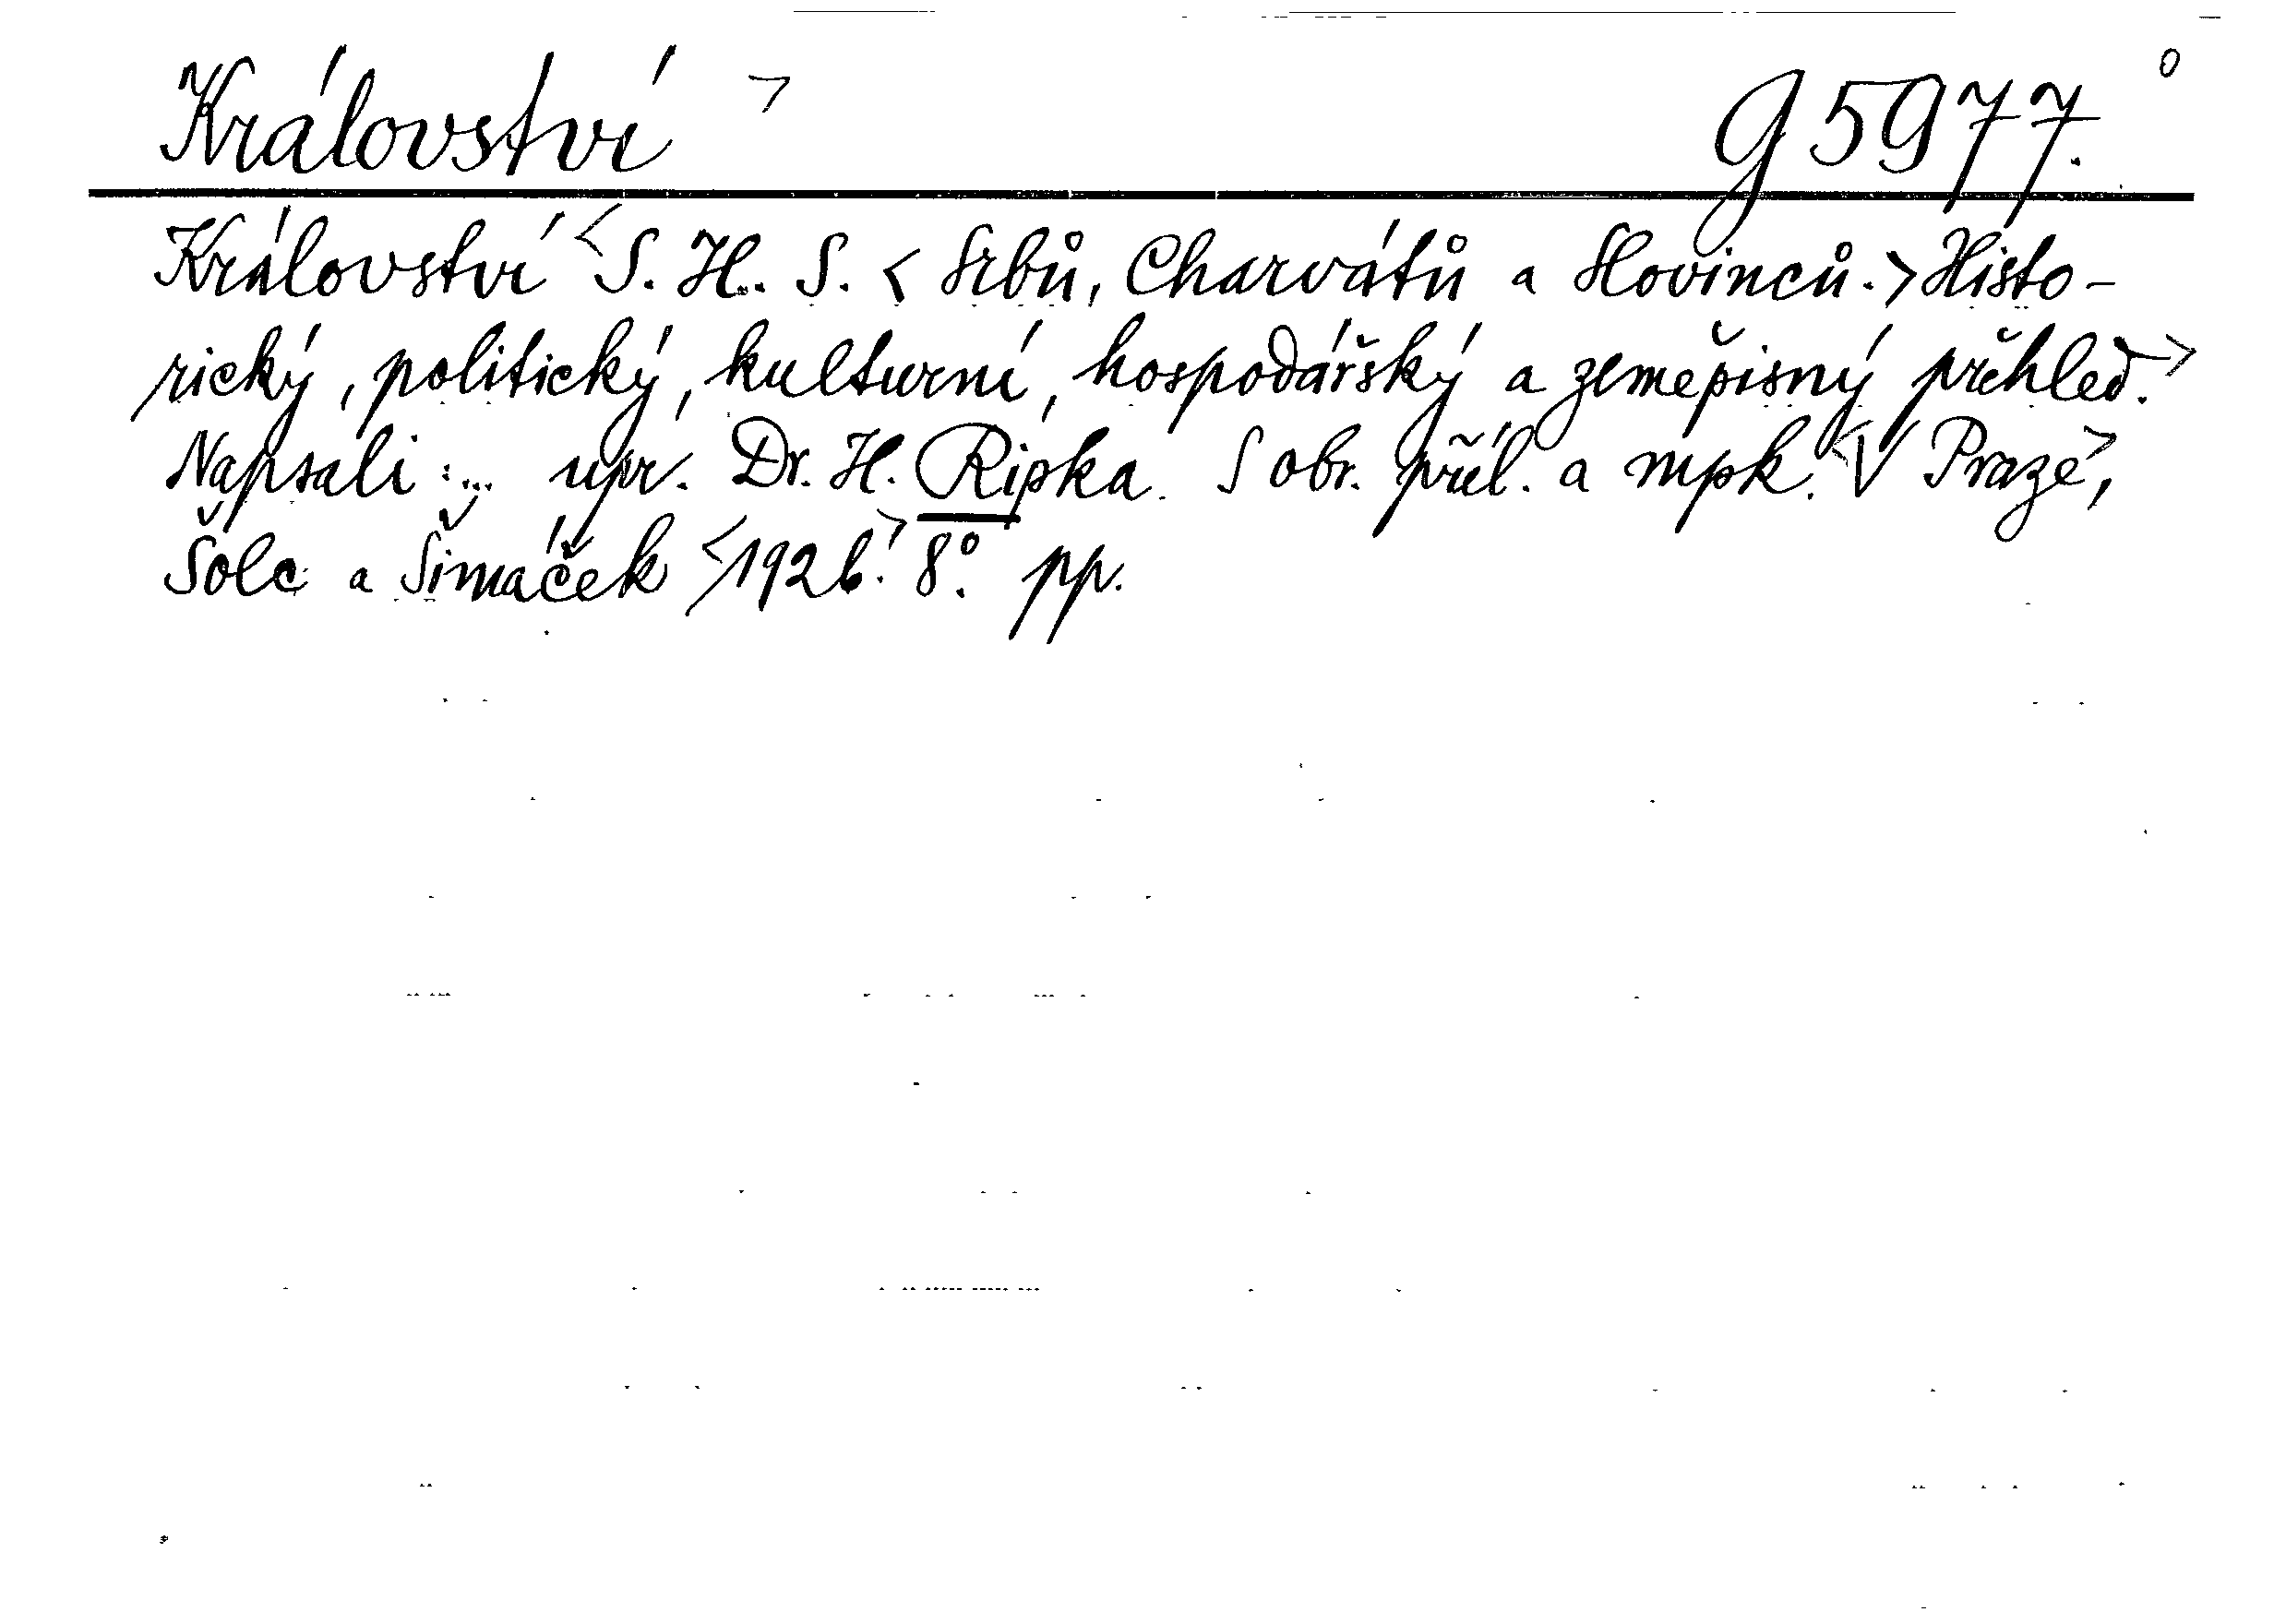 Království > g 5977. o
Království <S. H. S. < Srbů, Charvátů a Slovinců.> Histo-
rický, politický, kulturní, hospodářský a zeměpisný přehled.>
Napsali :... upr. Dr. H. Ripka. S obr. příl. a mpk. <V Praze>,
Šolc a Šimáček <1926.> 8°. pp.